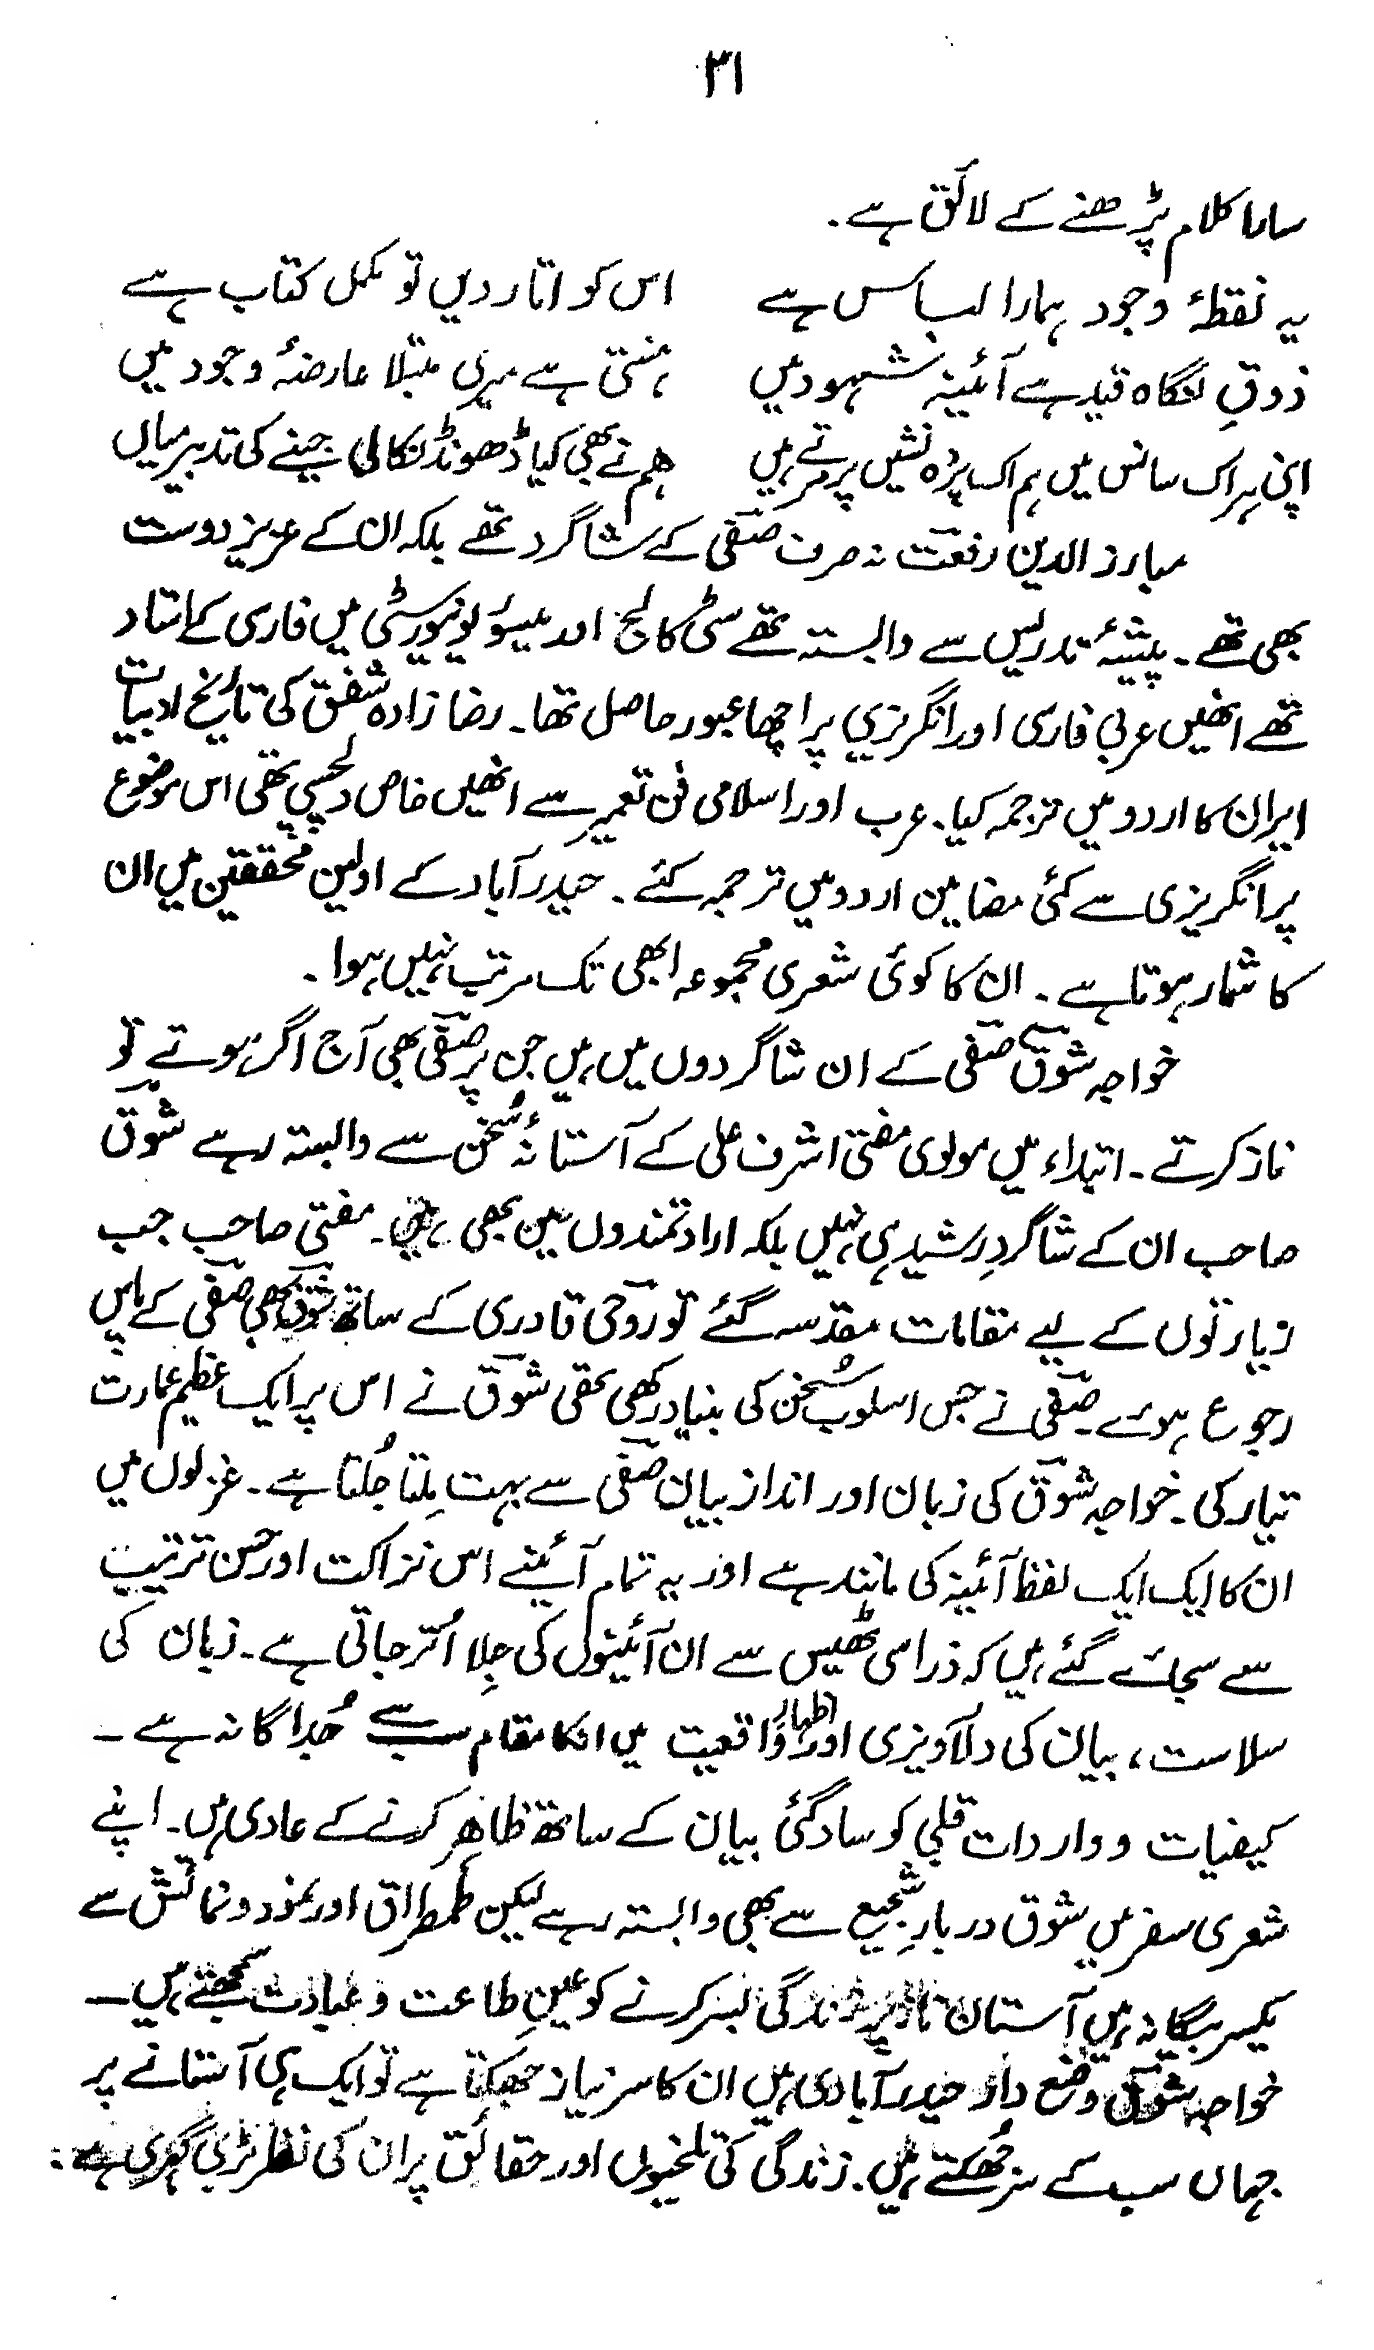 ۳۱
سارا کلام پڑھنے کے لائق ہے۔
یہ نقطۂ وجود ہمارا لباس ہے اس کو اتار دیں تو مکمل کتاب ہے
ذوقِ نگاہ قید ہے آئینۂ شہود میں ہستی ہے میری مبتلا عارضۂ وجود میں
اپنی ہر اک سانس میں ہم اک پردہ نشیں پر مرتے ہیں ہم نے بھی کیا ڈھونڈ نکالی جینے کی تدبیر میاں
مبارز الدین رفعت نہ صرف صفی کے شاگرد تھے بلکہ ان کے عزیز دوست
بھی تھے۔ پیشۂ تدریس سے وابستہ تھے سٹی کالج اور میسور یونیورسٹی میں فارسی کے استاد
تھے انھیں عربی فارسی اور انگریزی پر اچھا عبور حاصل تھا۔ رضا زادہ شفق کی تاریخ ادبیات
ایران کا اردو میں ترجمہ کیا۔ عرب اور اسلامی فن تعمیر سے انھیں خاص دلچسپی تھی اس موضوع
پر انگریزی سے کئی مضامین اردو میں ترجمہ کئے۔ حیدرآباد کے اولین محققین میں ان
کا شمار ہوتا ہے۔ ان کا کوئی شعری مجموعہ ابھی تک مرتب نہیں ہوا۔
خواجہ شوق صفی کے ان شاگردوں میں ہیں جن پر صفی بھی آج اگر ہوتے تو
ناز کرتے۔ ابتداء میں مولوی مفتی اشرف علی کے آستانۂ سُخن سے وابستہ رہے شوق
صاحب ان کے شاگردِ رشید ہی نہیں بلکہ ارادتمندوں میں بھی ہیں۔ مفتی صاحب جب
زیارتوں کے لیے مقامات مقدسہ گئے تو روحی قادری کے ساتھ شوق بھی صفی کے پاس
رجوع ہوئے۔ صفی نے جس اسلوبِ سُخن کی بنیاد رکھی تھی شوق نے اس پر ایک عظیم عمارت
تیار کی۔ خواجہ شوق کی زبان اور انداز بیان صفی سے بہت مِلتا جُلتا ہے۔ غزلوں میں
ان کا ایک ایک لفظ آئینہ کی مانند ہے اور یہ تمام آئینے اس نزاکت اور حسن ترتیب
سے سجائے گئے ہیں کہ ذرا سی ٹھیس سے ان آئینوں کی جِلا اُتر جاتی ہے۔ زبان کی
سلاست، بیان کی دلآویزی اور اظہارِ واقعیت میں انکا مقام سب سے جُدا گانہ ہے۔
کیفیات و واردات قلبی کو سادگئی بیان کے ساتھ ظاہر کرنے کے عادی ہیں۔ اپنے
شعری سفر میں شوق دربارِ شجیع سے بھی وابستہ رہے لیکن طمطراق اور نمود و نمائش سے
یکسر بیگانہ ہیں آستان زندگی بسر کرنے کو عینِ طاعت و عبادت سمجھتے ہیں۔
خواجہ شوق وضع دار حیدرآبادی ہیں ان کا سرنیاز جھکتا ہے تو ایک ہی آستانے پر
جہاں سب کے سر جُھکتے ہیں۔ زندگی کی تلخیوں اور حقائق پر ان کی نظر بڑی گہری ہے۔